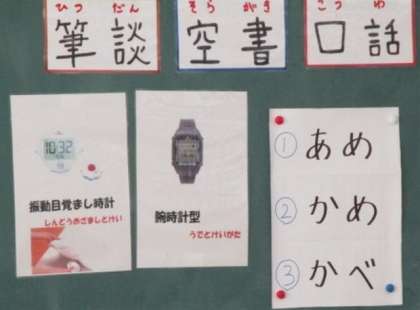 ひつ だん
筆談
そら がき
空書
こう わ
口話
10:32
振動目覚まし時計
しんどうめざましとけい
腕時計型
うでとけいがた
① あめ
② かめ
③ かべ